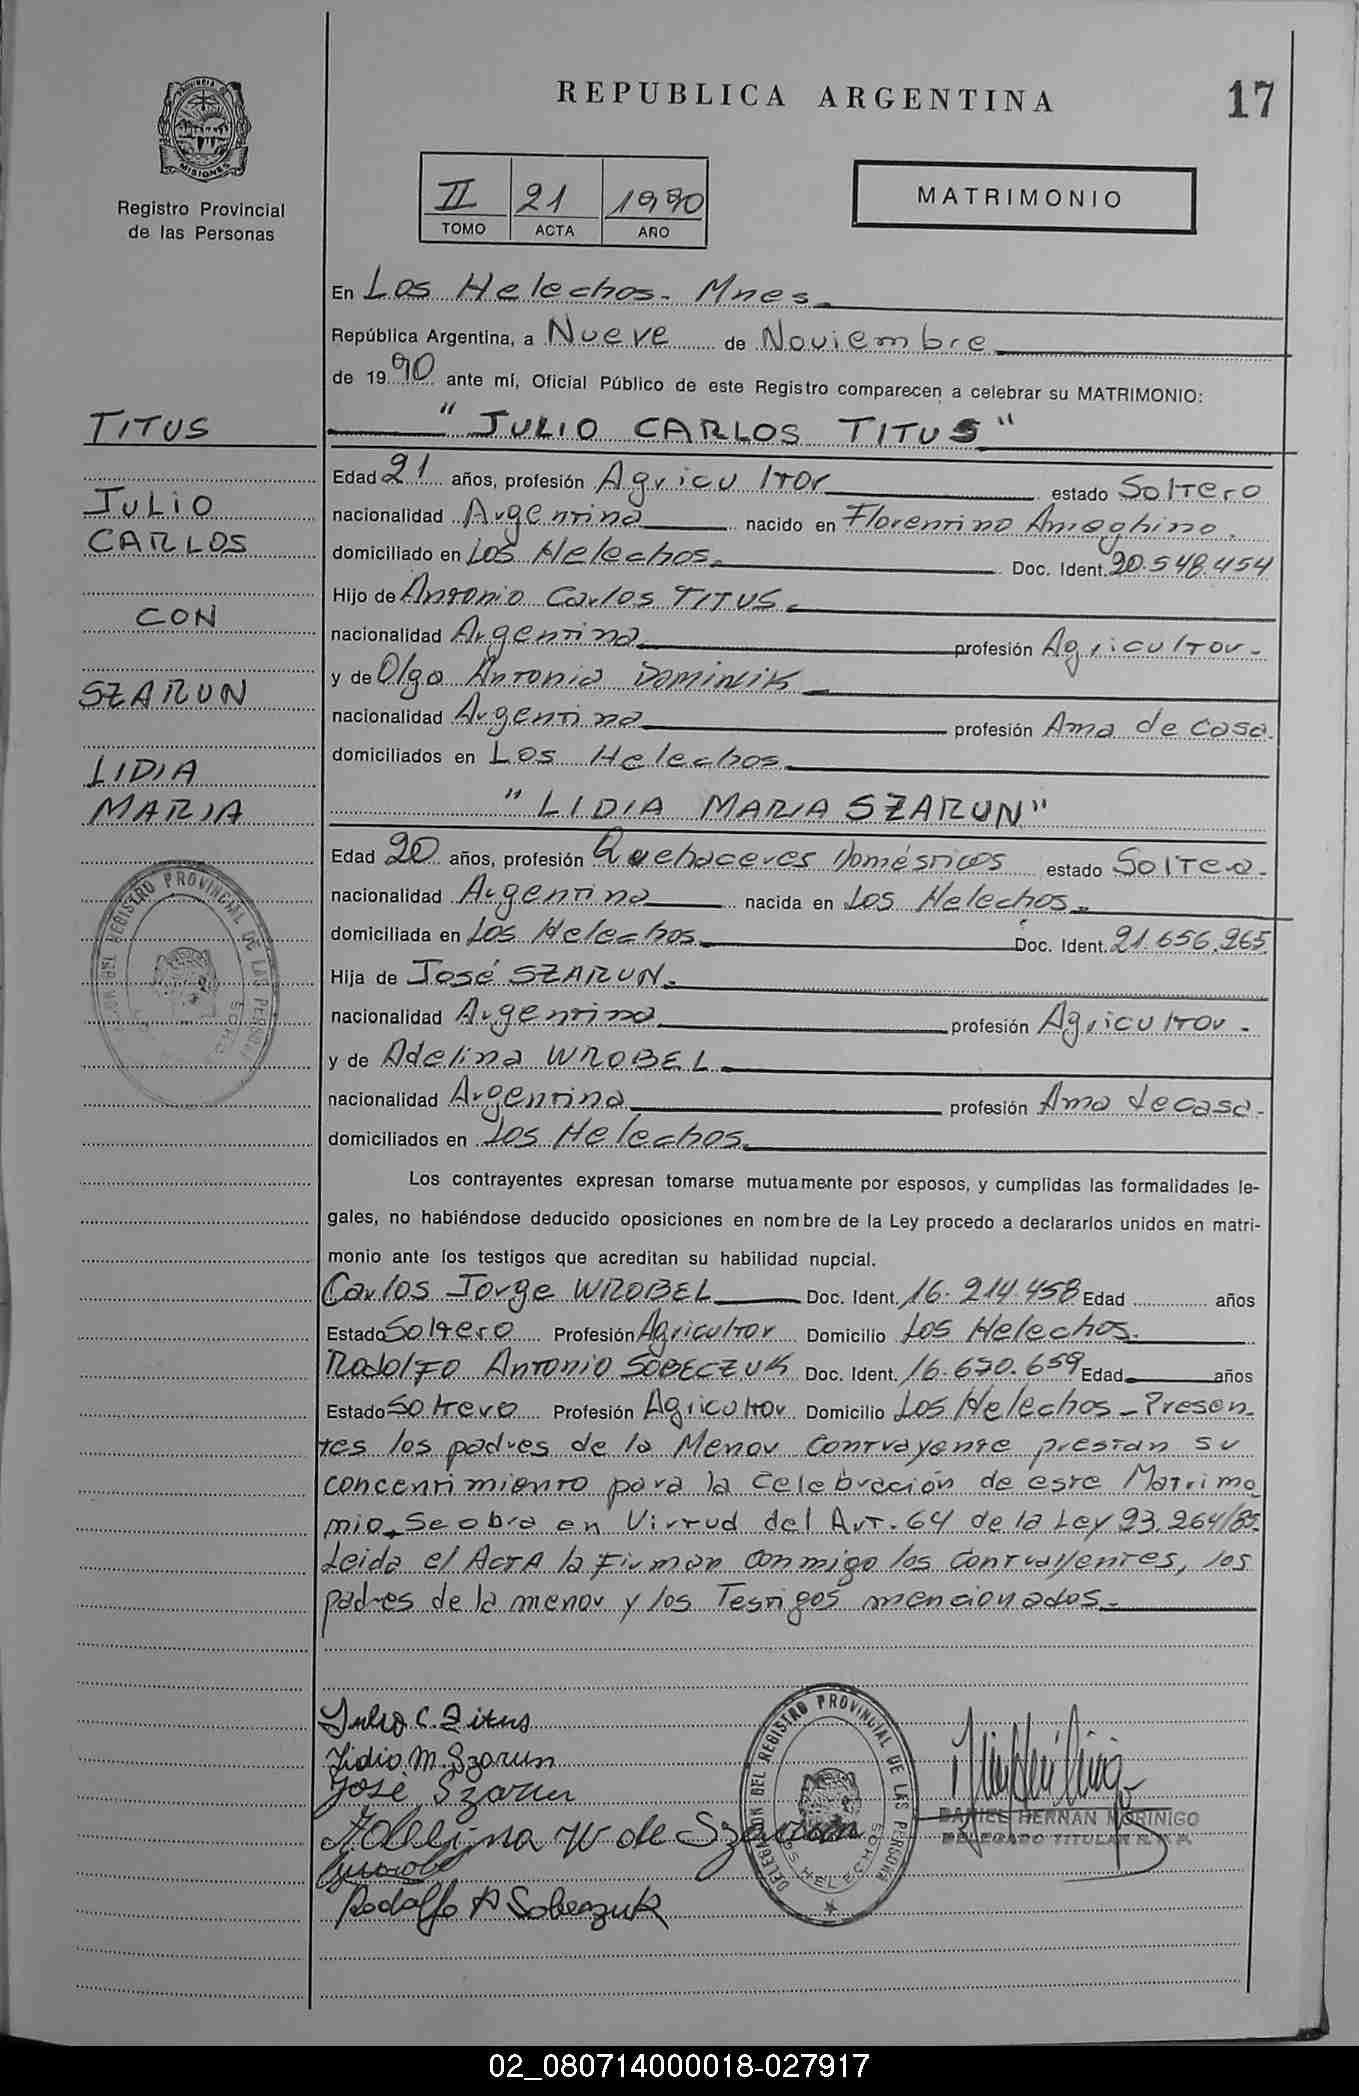 REPUBLICA ARGENTINA
17
PROVINCIA DE
MISIONES
Registro Provincial
de las Personas
II 21 1990
TOMO ACTA AÑO
MATRIMONIO
En Los Helechos - Mnes
República Argentina, a Nueve de Noviembre
de 1990 ante mí, Oficial Público de este Registro comparecen a celebrar su MATRIMONIO:
TITUS
JULIO
CARLOS
CON
SZARUN
LIDIA
MARIA
"JULIO CARLOS TITUS"
Edad 21 años, profesión Agricultor estado Soltero
nacionalidad Argentina nacido en Florentino Ameghino.
domiciliado en Los Helechos. Doc. Ident. 20.548.454
Hijo de Antonio Carlos TITUS.
nacionalidad Argentina profesión Agricultor.
y de Olga Antonia DOMINIK
nacionalidad Argentina profesión Ama de casa.
domiciliados en Los Helechos
"LIDIA MARIA SZARUN"
Edad 20 años, profesión Quehaceres Domésticos estado Soltera.
nacionalidad Argentina nacida en Los Helechos.
domiciliada en Los Helechos. Doc. Ident. 21.656.265
Hija de José SZARUN.
nacionalidad Argentina profesión Agricultor.
y de Adelina WROBEL
nacionalidad Argentina profesión Ama de casa.
domiciliados en Los Helechos.
Los contrayentes expresan tomarse mutuamente por esposos, y cumplidas las formalidades le-
gales, no habiéndose deducido oposiciones en nombre de la Ley procedo a declararlos unidos en matri-
monio ante los testigos que acreditan su habilidad nupcial.
Carlos Jorge WROBEL Doc. Ident. 16.214.458 Edad años
Estado Soltero Profesión Agricultor Domicilio Los Helechos.
Rodolfo Antonio SOBECZUK Doc. Ident. 16.670.659 Edad años
Estado Soltero Profesión Agricultor Domicilio Los Helechos - Presen-
tes los padres de la Menor Contrayente prestan su
concentimiento para la Celebración de este Matrimo
nio. Se obra en Virtud del Art. 64 de la Ley 23.264/85.
Leida el Acta la Firman conmigo los Contrayentes, los
padres de la menor y los Testigos mencionados.
Julio C. Titus
Lidia M. Szarun
José Szarun
Adelina W de Szarun
Rodolfo A Sobeczuk
DELEGACION DEL REGISTRO PROVINCIAL DE LAS PERSONAS
LOS HELECHOS
DANIEL HERNAN MORINIGO
DELEGADO TITULAR R. P. P.
02_080714000018-027917